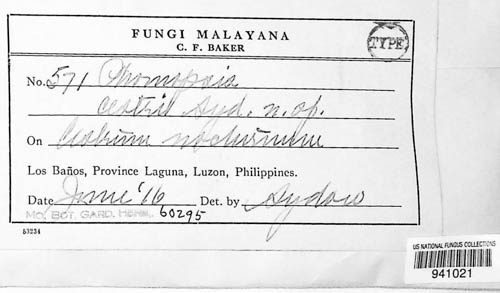 FUNGI MALAYANA
C. F. BAKER
TYPE
No. 571 Phomopsis
cestri Syd. n. sp.
On Cestrum nocturnum
Los Baños, Province Laguna, Luzon, Philippines.
Date June '16 Det. by Sydow
MO. BOT. GARD. HERB. 60295
53234
US NATIONAL FUNGUS COLLECTIONS
941021